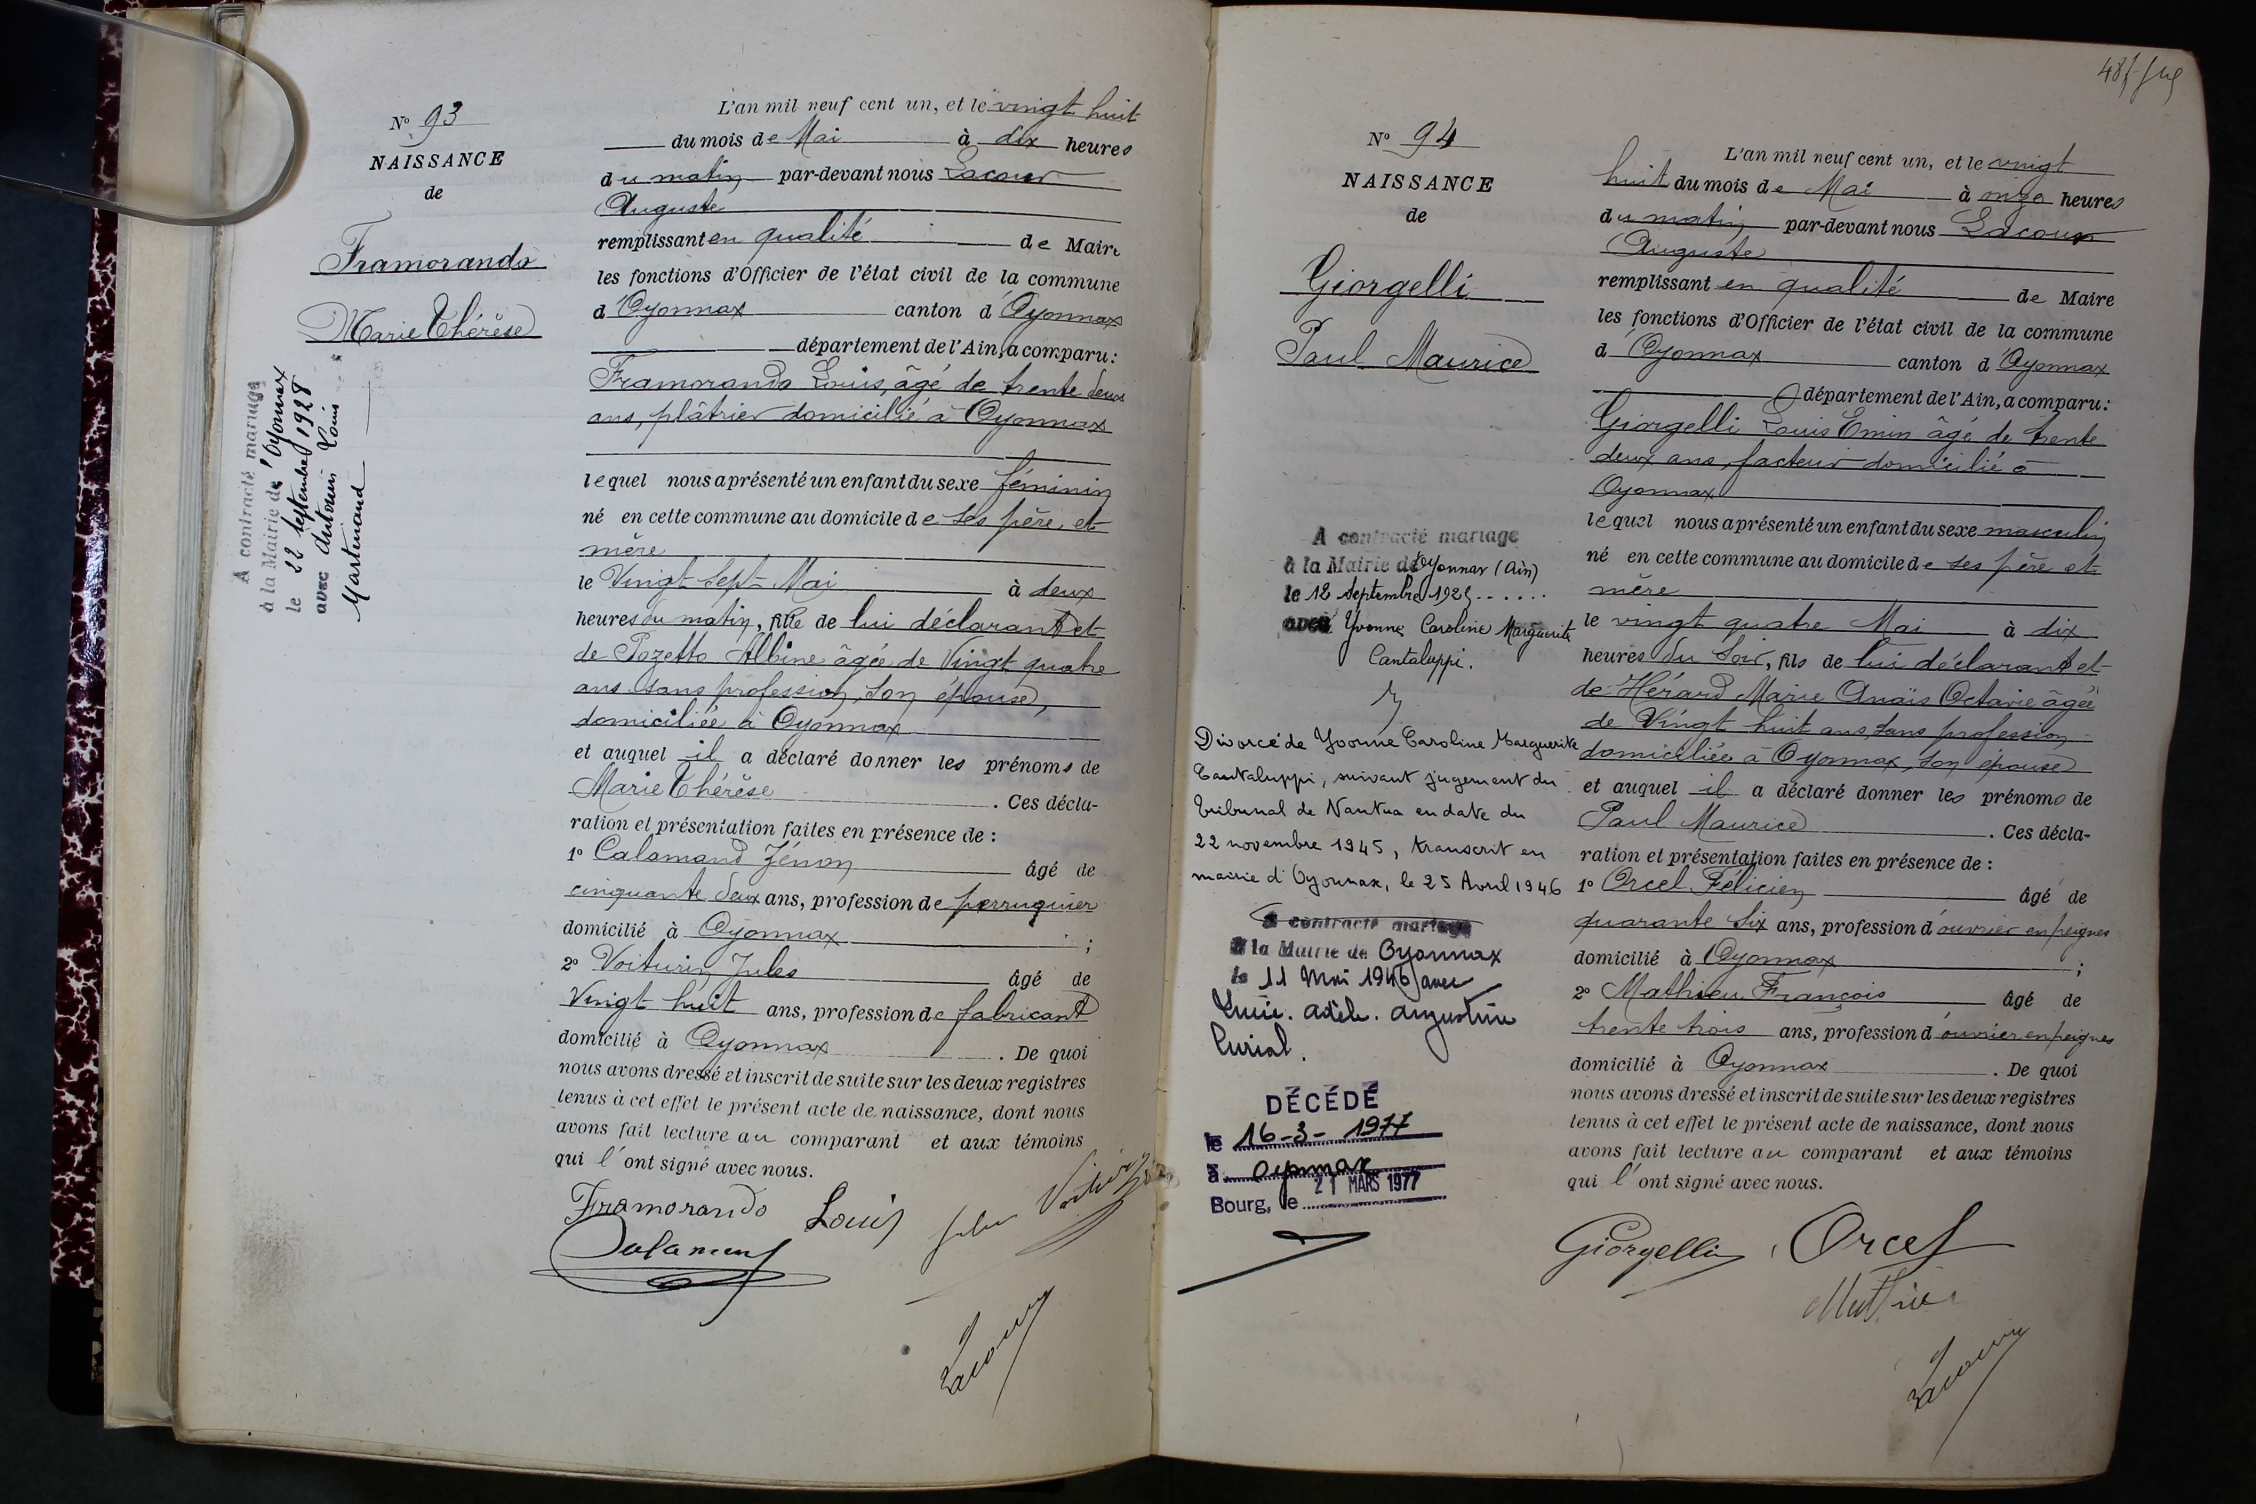 N° 93
NAISSANCE
de
Framorando
Marie Thérèse
A contracté mariage
à la Mairie d'Oyonnax
le 22 septembre 1928
avec Antonin Louis
Martinand
L'an mil neuf cent un, et le vingt huit
du mois de Mai à dix heures
du matin par-devant nous Lacour
Auguste
remplissant en qualité de Maire
les fonctions d'Officier de l'état civil de la commune
d'Oyonnax canton d'Oyonnax
département de l'Ain, a comparu :
Framorando Louis, âgé de trente deux
ans, plâtrier domicilié à Oyonnax
lequel nous a présenté un enfant du sexe féminin
né en cette commune au domicile de ses père et
mère
le Vingt sept Mai à deux
heures du matin, fille de lui déclarant et
de Pozetto Albine âgée de Vingt quatre
ans sans profession, son épouse,
domiciliée à Oyonnax
et auquel il a déclaré donner les prénoms de
Marie Thérèse . Ces décla-
ration et présentation faites en présence de :
1° Calamand Zénon âgé de
cinquante deux ans, profession de perruquier
domicilié à Oyonnax ;
2° Voiturin Jules âgé de
Vingt huit ans, profession de fabricant
domicilié à Oyonnax . De quoi
nous avons dressé et inscrit de suite sur les deux registres
tenus à cet effet le présent acte de naissance, dont nous
avons fait lecture au comparant et aux témoins
qui l'ont signé avec nous.
Framorando Louis
Calamand
Lacour
48
N° 94
NAISSANCE
de
Giorgelli
Paul Maurice
A contracté mariage
à la Mairie d'Oyonnax (Ain)
le 12 septembre 192
avec Yvonne Caroline Marguerite
Cantaluppi.
Divorcé de Yvonne Caroline Marguerite
Cantaluppi, suivant jugement du
tribunal de Nantua en date du
22 novembre 1945, transcrit en
mairie d'Oyonnax, le 25 Avril 1946
A contracté mariage
à la Mairie de Oyonnax
le 11 Mai 1946 avec
Lucie. Adèle. Augustine
Curial.
DÉCÉDÉ
le 16-3-1977
à Oyonnax
Bourg, le 21 MARS 1977
L'an mil neuf cent un, et le vingt
huit du mois de Mai à onze heures
du matin par-devant nous Lacour
Auguste
remplissant en qualité de Maire
les fonctions d'Officier de l'état civil de la commune
d'Oyonnax canton d'Oyonnax
département de l'Ain, a comparu :
Giorgelli Louis Emin âgé de trente
deux ans, facteur domicilié à
Oyonnax
lequel nous a présenté un enfant du sexe masculin
né en cette commune au domicile de ses père et
mère
le vingt quatre Mai à dix
heures du soir, fils de lui déclarant et
de Hérard Marie Anaïs Octavie âgée
de Vingt huit ans, sans profession
domiciliée à Oyonnax, son épouse
et auquel il a déclaré donner les prénoms de
Paul Maurice . Ces décla-
ration et présentation faites en présence de :
1° Orcel Félicien âgé de
quarante six ans, profession d'ouvrier en peignes
domicilié à Oyonnax ;
2° Mathieu François âgé de
trente trois ans, profession d'ouvrier en peignes
domicilié à Oyonnax . De quoi
nous avons dressé et inscrit de suite sur les deux registres
tenus à cet effet le présent acte de naissance, dont nous
avons fait lecture au comparant et aux témoins
qui l'ont signé avec nous.
Giorgelli Orcel
Mathieu
Lacour